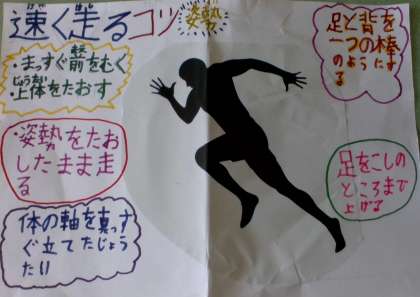 速く走るコツ 姿勢
・まっすぐ前をむく
上体をたおす
・姿勢をたお
したまま走
る
体の軸を真っす
ぐ立てたじょう
たい
足と背を
一つの棒
のようにす
る
足をこしの
ところまで
上げる